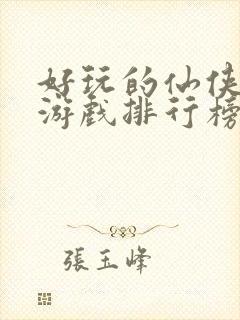 好玩的仙侠
游戏排行榜
張玉峰